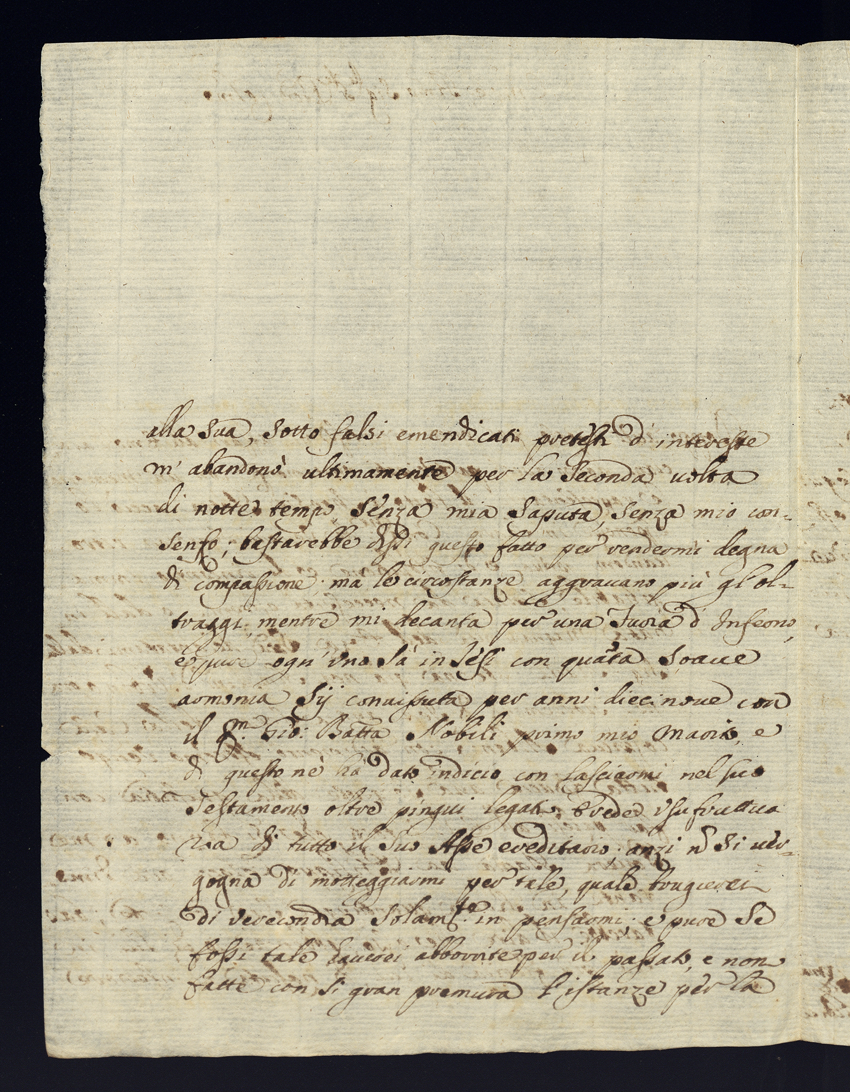 alla sua, sotto falsi emendicati pretesti d'interesse
m'abandonò ultimamente per la seconda uolta
di notte tempo senza mia saputa, senza mio con-
senso; bastarebbe dissi questo fatto per rendermi degna
di compassione ma le circostanze aggrauano più gl'ol-
traggi, mentre mi decanta per una Furia d'Inferno,
e pure ogn'uno sà in Jesi con quãta soaue
armonia sij conuissuta per anni diecinoue con
il qm. Gio: Batta Nobili primo mio Marito, e
di questo nè hà dato indicio con lasciarmi nel suo
Testamento oltre pingui legati Erede usufruttua
ria di tutto il suo Asse ereditario; anzi nõ si uer-
gogna di motteggiarmi per tale, quale
di verecondia solamte. in pensarmi; e pure se
fossi tale haurei abborrite per il passato, e non
fatte con sì gran premura l'istanze per la